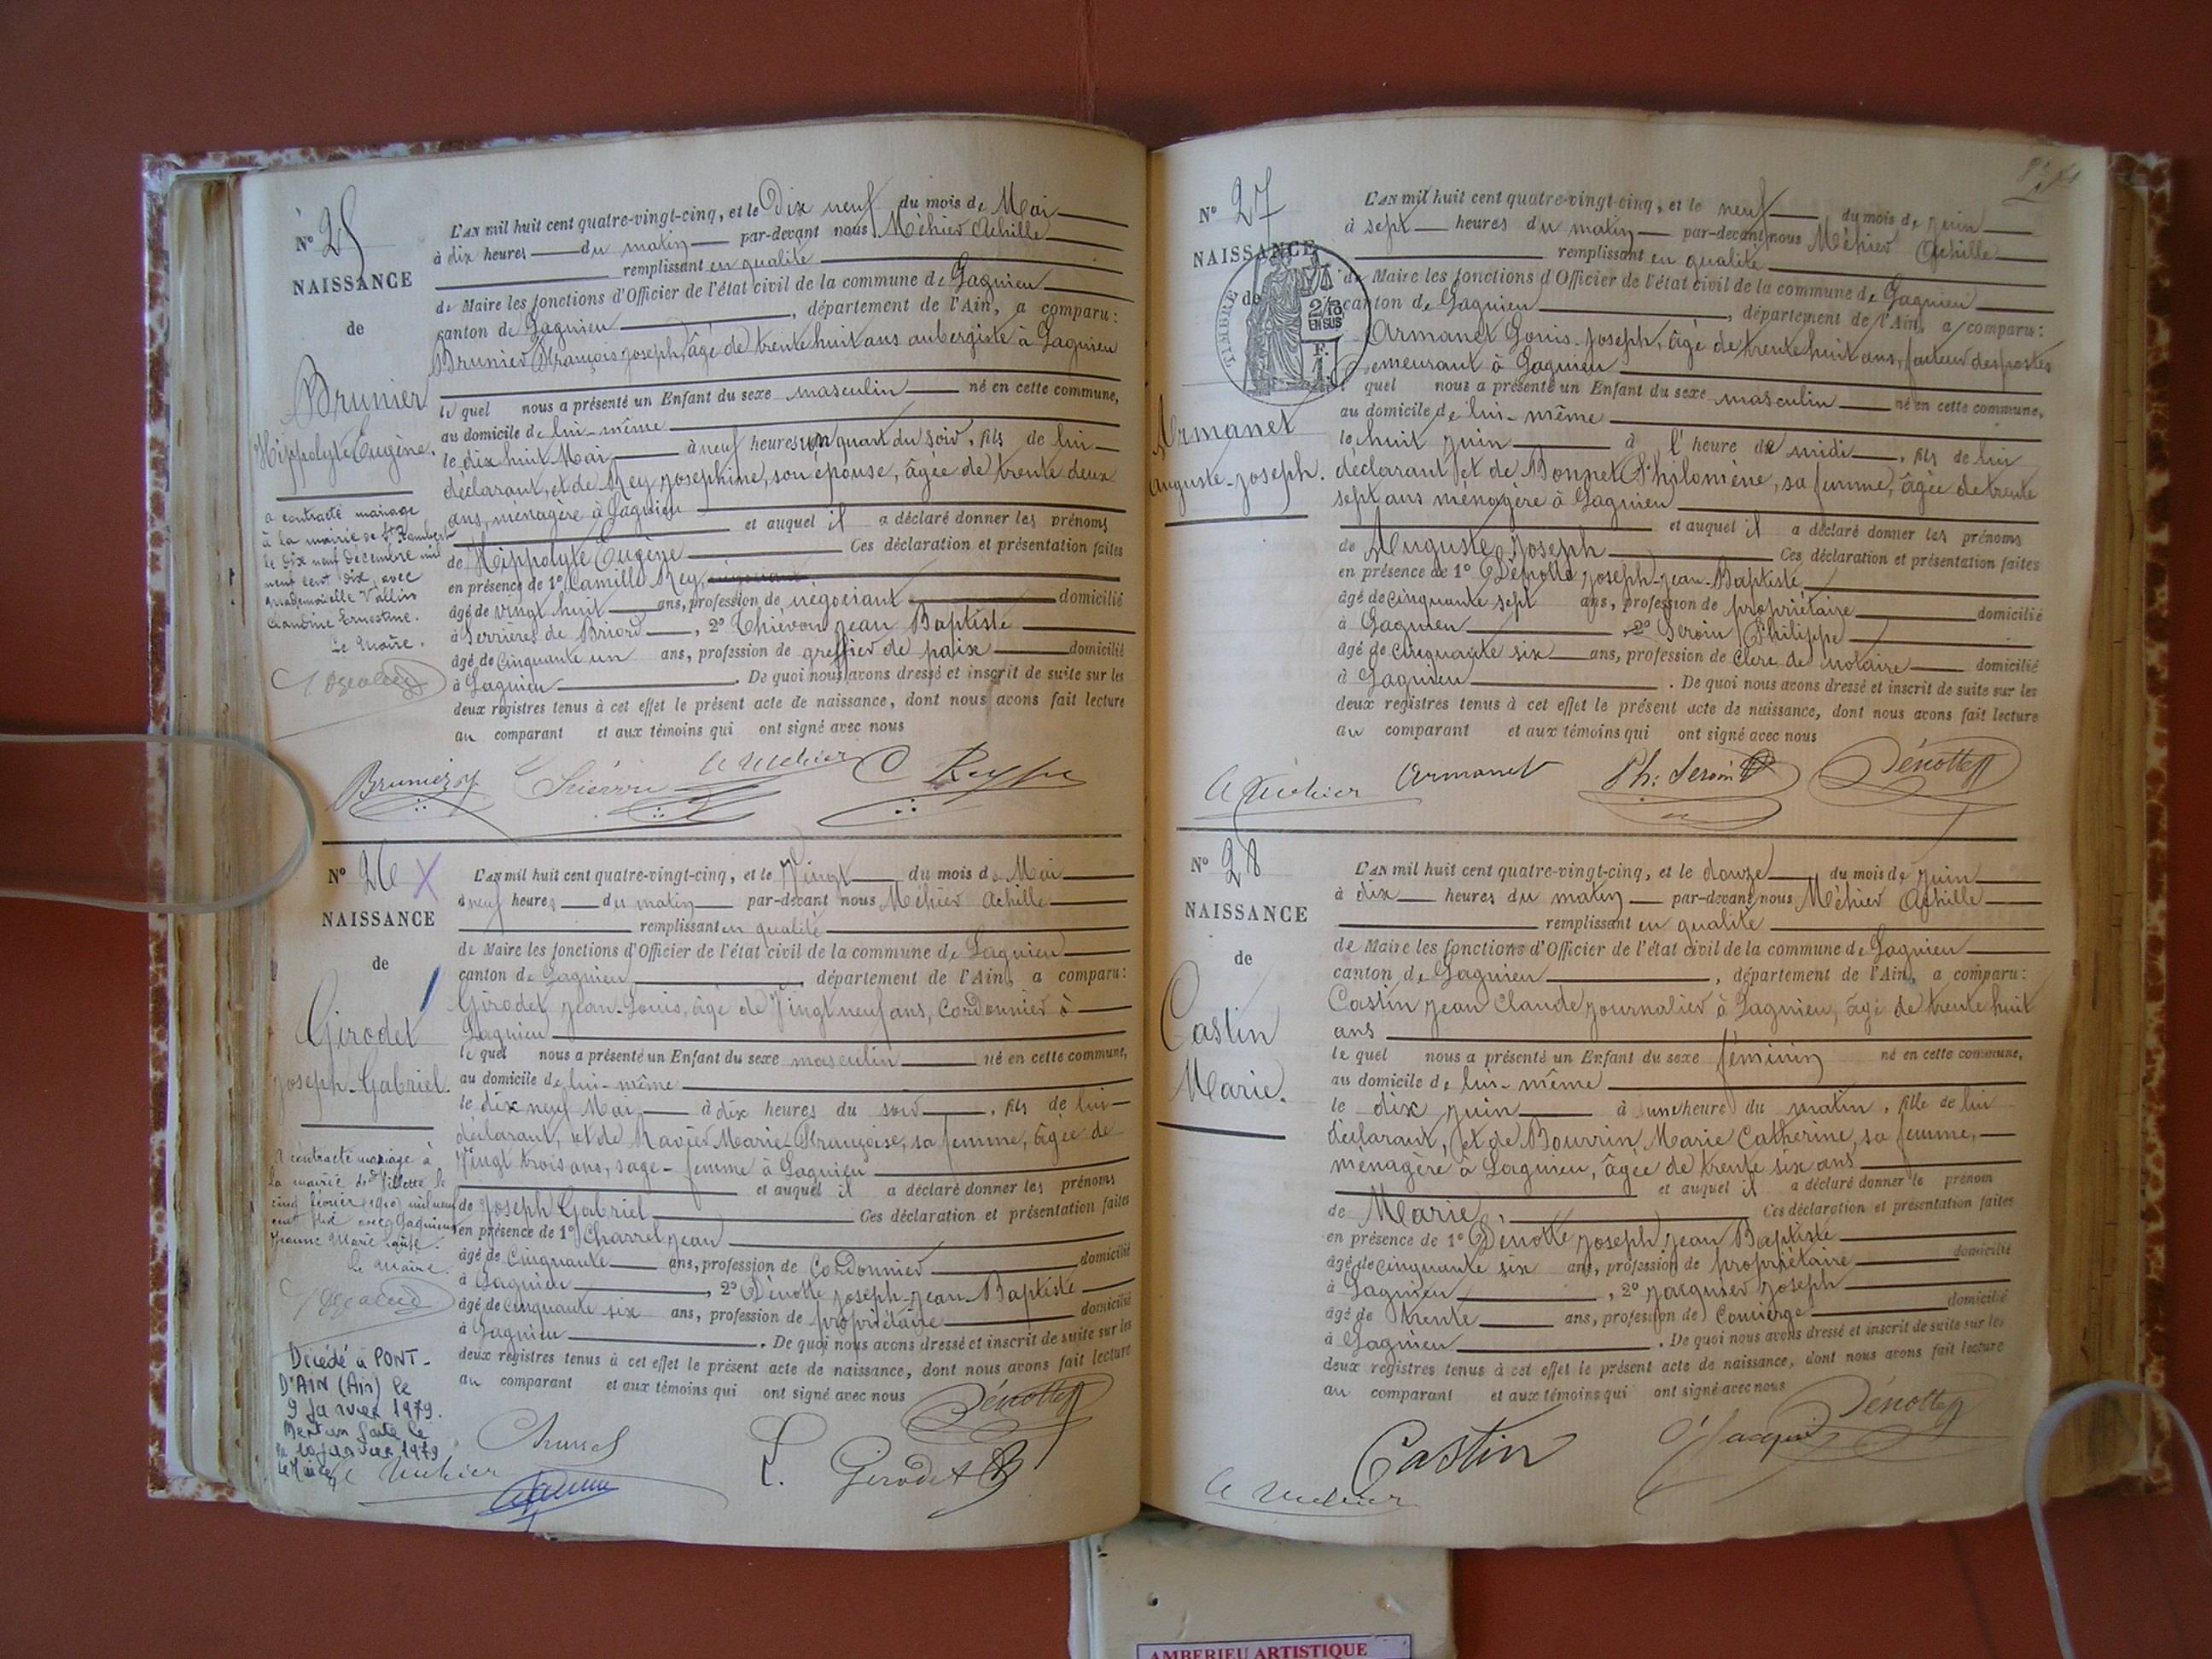 N° 25
NAISSANCE
de
Brunier
Hippolyte Eugène.
a contracté mariage
à la mairie de St Rambert
le dix neuf décembre mil
neuf cent dix, avec
Mademoiselle Vallin
Claudine Ernestine.
Le Maire.
L'AN mil huit cent quatre-vingt-cinq, et le Dix neuf du mois de Mai
à dix heures du matin par-devant nous Méhier Achille
remplissant en qualité
de Maire les fonctions d'Officier de l'état civil de la commune de Lagnieu
canton de Lagnieu, département de l'Ain, a comparu:
Brunier François Joseph, âgé de trente huit ans aubergiste à Lagnieu
le quel nous a présenté un Enfant du sexe masculin né en cette commune,
au domicile de lui-même
le dix huit Mai à neuf heures un quart du soir, fils de lui
déclarant, et de Rey Josephine, son épouse, âgée de trente deux
ans, ménagère à Lagnieu
et auquel il a déclaré donner les prénoms
de Hippolyte Eugène Ces déclaration et présentation faites
en présence de 1° Camille Rey,
âgé de vingt huit ans, profession de négociant domicilié
à Serrières de Briord, 2° Thiévon Jean Baptiste
âgé de cinquante un ans, profession de greffier de paix domicilié
à Lagnieu. De quoi nous avons dressé et inscrit de suite sur les
deux registres tenus à cet effet le présent acte de naissance, dont nous avons fait lecture
au comparant et aux témoins qui ont signé avec nous
Brunier A Méhier C Rey
N° 26 X
NAISSANCE
de
Girodet
Joseph-Gabriel.
A contracté mariage à
la mairie de Villette le
cinq février (1910) mil neuf
cent dix avec
Jeanne Marie
Le Maire.
Décédé à PONT-
D'AIN (Ain) le
9 Janvier 1979.
Mention faite le
10 janvier 1979
Le Maire
L'AN mil huit cent quatre-vingt-cinq, et le Vingt du mois de Mai
à neuf heures du matin par-devant nous Méhier Achille
remplissant en qualité
de Maire les fonctions d'Officier de l'état civil de la commune de Lagnieu
canton de Lagnieu, département de l'Ain, a comparu:
Girodet Jean-Louis, âgé de Vingt neuf ans, Cordonnier à
Lagnieu
le quel nous a présenté un Enfant du sexe masculin né en cette commune,
au domicile de lui-même
le dix neuf Mai à dix heures du soir, fils de lui
déclarant, et de Ravier Marie Françoise, sa femme, âgée de
Vingt trois ans, sage-femme à Lagnieu
et auquel il a déclaré donner les prénoms
de Joseph Gabriel Ces déclaration et présentation faites
en présence de 1° Charrel Jean
âgé de Cinquante ans, profession de Cordonnier domicilié
à Lagnieu, 2° Dénotte Joseph-Jean-Baptiste
âgé de Cinquante six ans, profession de propriétaire domicilié
à Lagnieu. De quoi nous avons dressé et inscrit de suite sur les
deux registres tenus à cet effet le présent acte de naissance, dont nous avons fait lecture
au comparant et aux témoins qui ont signé avec nous
Dénotte
Charrel
A Méhier L. Girodet
N° 27
NAISSANCE
de
TIMBRE
2/10
EN SUS
F.
1
Armanet
Auguste-Joseph.
L'AN mil huit cent quatre-vingt-cinq, et le neuf du mois de Juin
à sept heures du matin par-devant nous Méhier Achille
remplissant en qualité
de Maire les fonctions d'Officier de l'état civil de la commune de Lagnieu
canton de Lagnieu, département de l'Ain, a comparu:
Armanet Louis-Joseph, âgé de trente huit ans, facteur des postes
demeurant à Lagnieu
quel nous a présenté un Enfant du sexe masculin né en cette commune,
au domicile de lui-même
le huit Juin à l'heure de midi, fils de lui
déclarant et de Bonnet Philomène, sa femme, âgée de trente
sept ans ménagère à Lagnieu
et auquel il a déclaré donner les prénoms
de Auguste Joseph Ces déclaration et présentation faites
en présence de 1° Dénotte Joseph-Jean-Baptiste
âgé de Cinquante sept ans, profession de propriétaire domicilié
à Lagnieu, 2° Seroin Philippe
âgé de Cinquante six ans, profession de Clerc de notaire domicilié
à Lagnieu. De quoi nous avons dressé et inscrit de suite sur les
deux registres tenus à cet effet le présent acte de naissance, dont nous avons fait lecture
au comparant et aux témoins qui ont signé avec nous
A Méhier Armanet Ph: Seroin Dénotte
N° 28
NAISSANCE
de
Castin
Marie.
L'AN mil huit cent quatre-vingt-cinq, et le douze du mois de Juin
à dix heures du matin par-devant nous Méhier Achille
remplissant en qualité
de Maire les fonctions d'Officier de l'état civil de la commune de Lagnieu
canton de Lagnieu, département de l'Ain, a comparu:
Castin Jean Claude journalier à Lagnieu, âgé de trente huit
ans
le quel nous a présenté un Enfant du sexe féminin né en cette commune,
au domicile de lui-même
le dix Juin à une heure du matin, fille de lui
déclarant, et de Bourrin Marie Catherine, sa femme,
ménagère à Lagnieu, âgée de trente six ans
et auquel il a déclaré donner le prénom
de Marie, Ces déclaration et présentation faites
en présence de 1° Dénotte Joseph Jean Baptiste
âgé de cinquante six ans, profession de propriétaire domicilié
à Lagnieu, 2° Jacquier Joseph
âgé de trente ans, profession de Concierge domicilié
à Lagnieu. De quoi nous avons dressé et inscrit de suite sur les
deux registres tenus à cet effet le présent acte de naissance, dont nous avons fait lecture
au comparant et aux témoins qui ont signé avec nous
Dénotte
Castin Jacquier
A Méhier
AMBERIEU ARTISTIQUE